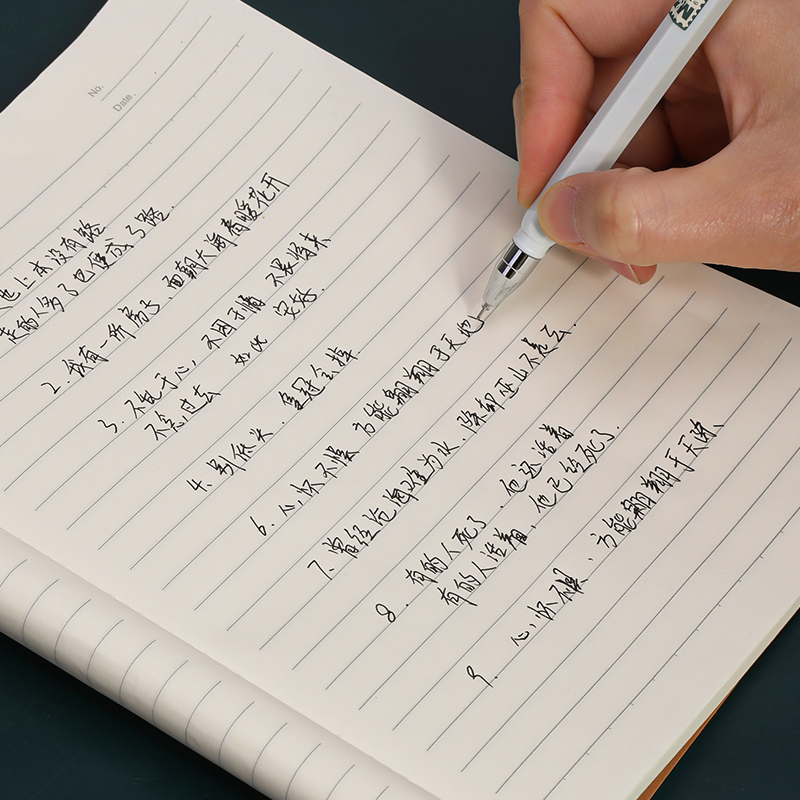 No.
Date.
地上本没有路
走的人多了也便成了路.
2. 我有一所房子, 面朝大海春暖花开
3. 不乱于心, 不困于情 不畏将来
不念过去 如此 安好.
4. 别低头, 皇冠会掉
6. 心怀不惧 方能翱翔于天地
7. 曾经沧海难为水, 除却巫山不是云.
8. 有的人死了, 他还活着
有的人活着, 他已经死了.
9. 心怀不惧, 方能翱翔于天际、